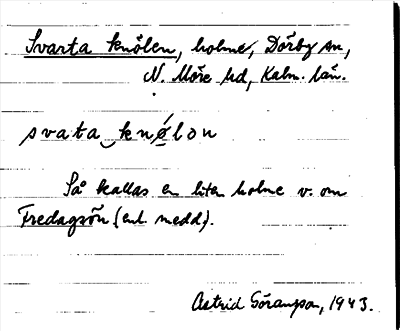 Svarta knölen, holme, Dörby sn,
N. Möre hd, Kalm. län.
svata‿knǿlon
Så kallas en liten holme v. om
Fredagsön (enl. medd).
Astrid Göransson, 1943.